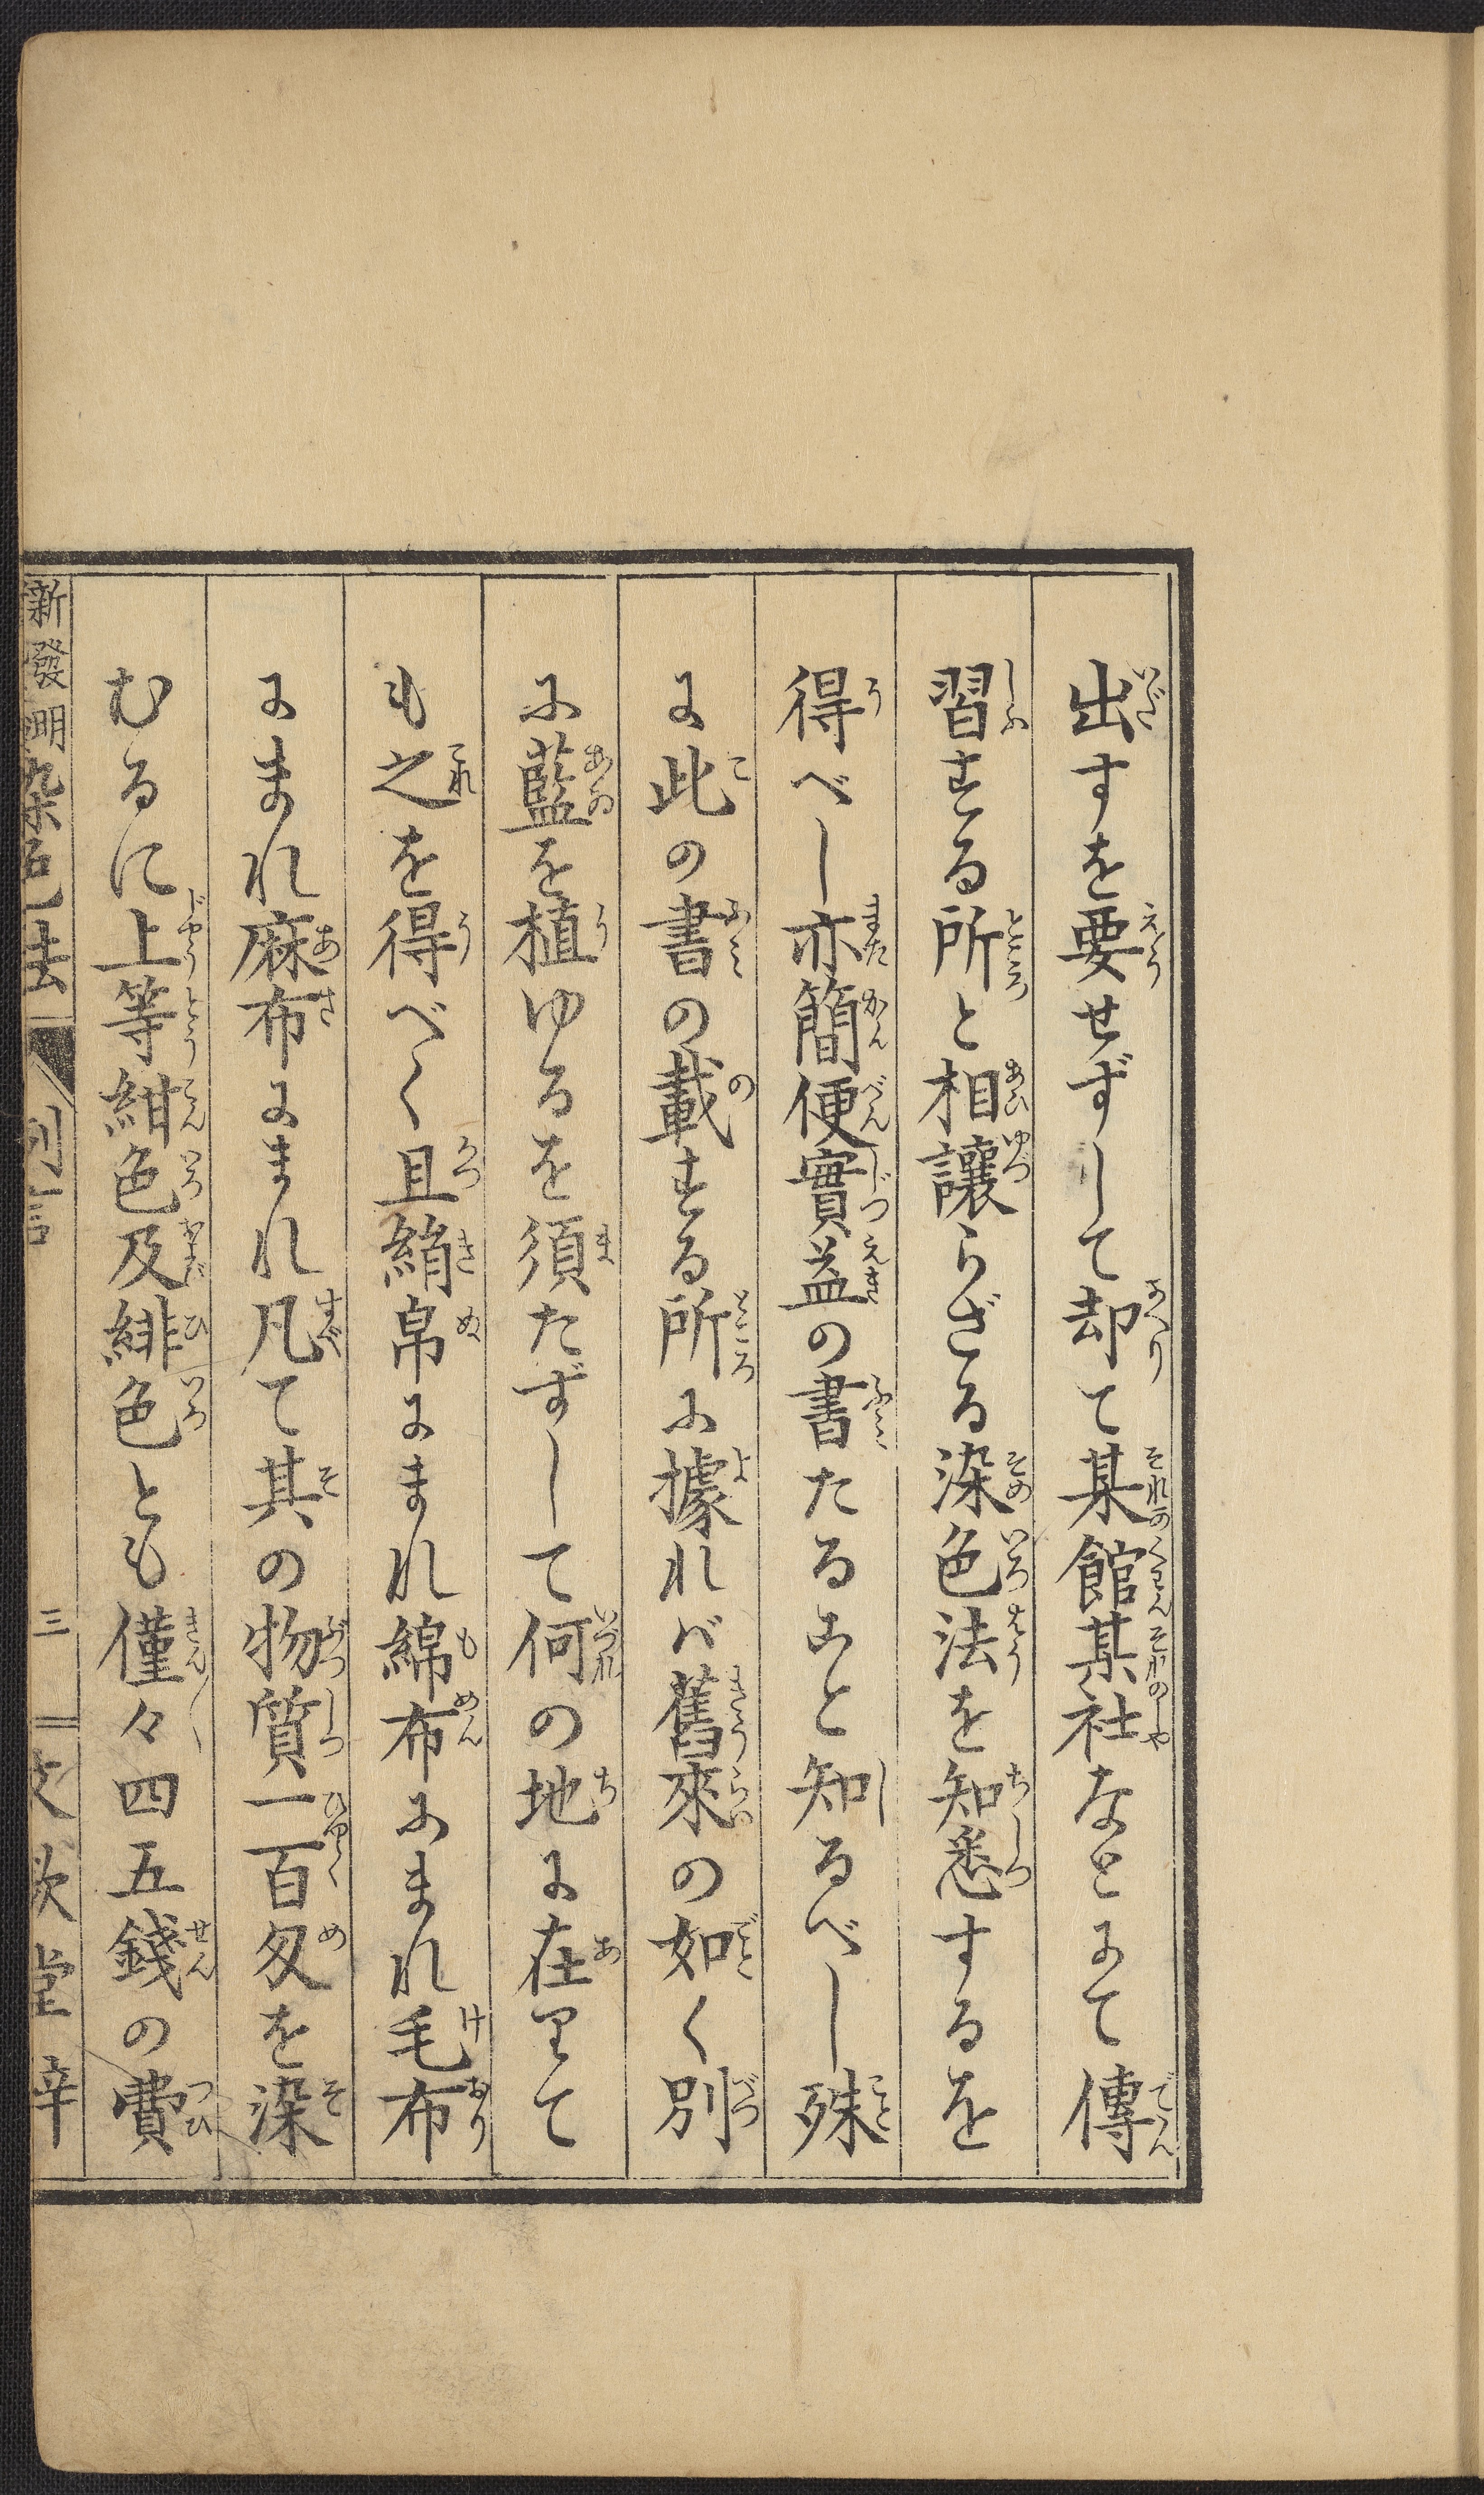 出すを要せずして却て某館某社なとにて傳
習する所と相讓らざる染色法を知悉するを
得べし亦簡便實益の書たること知るべし殊
に此の書の載する所に據れば舊來の如く別
に藍を植ゆるを須たずして何の地に在りて
も之を得べく且絹帛にまれ綿布にまれ毛布
にまれ麻布にまれ凡て其の物質一百匁を染
むるに上等紺色及緋色とも僅々四五錢の費
新發明染色法 例言 三